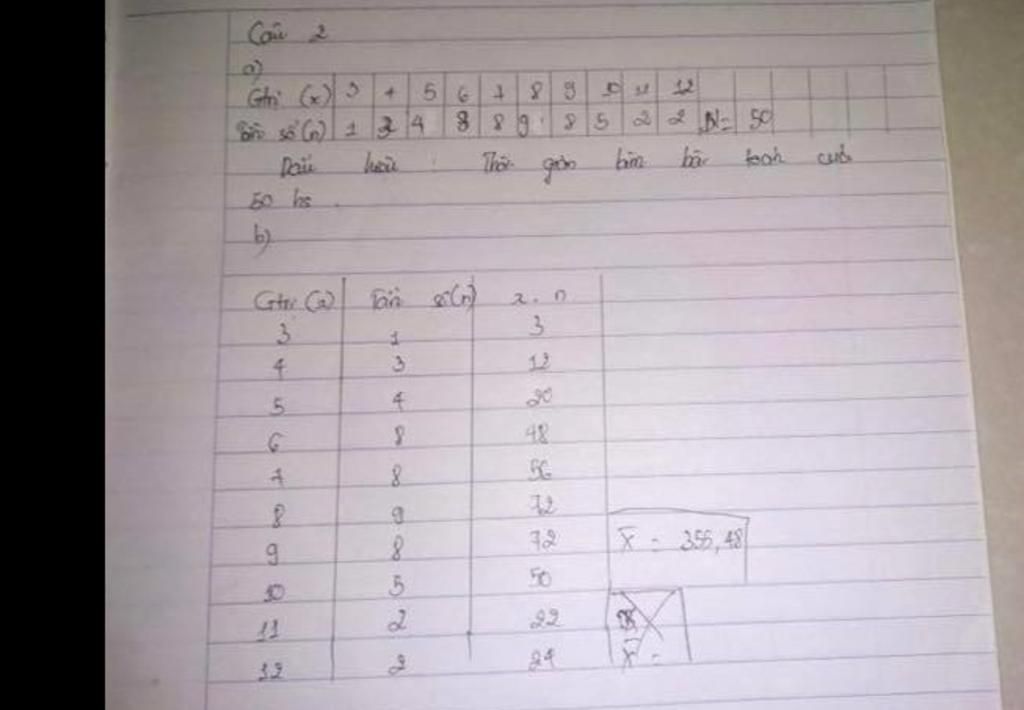 Câu 2
a)
Gtrị (x) 3 4 5 6 7 8 9 10 11 12
Tần số (n) 1 3 4 8 8 9 8 5 2 2 N = 50
Dấu hiệu : Thời gian làm bài toán của
50 hs .
b)
Gtrị (x) Tần số (n) x . n
3 1 3
4 3 12
5 4 20
6 8 48
7 8 56
8 9 72
9 8 72 X̄ = 356,48
10 5 50
11 2 22
12 2 24 X̄ =